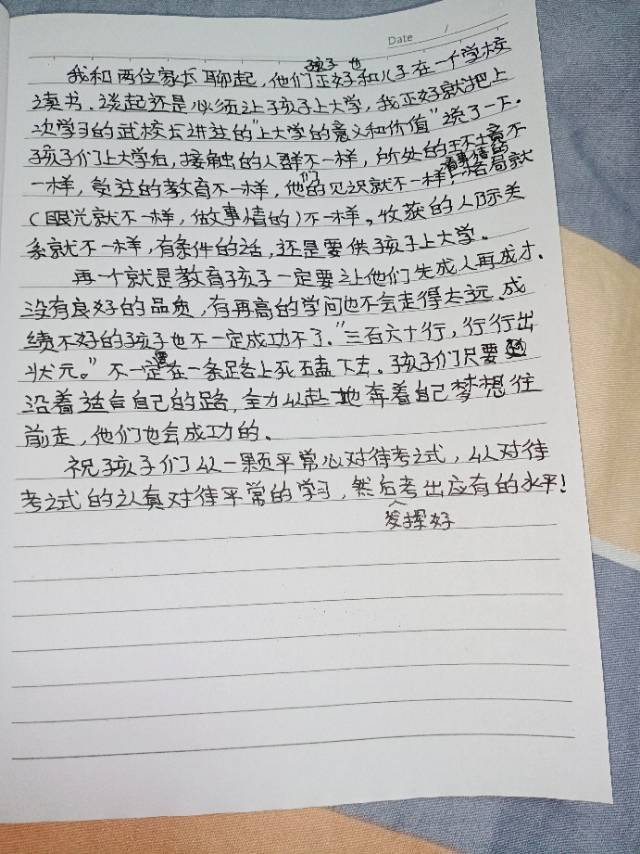 Date /
我和两位家长聊起，他们孩子也正好和儿子在一个学校
读书、谈起还是必须让孩子上大学，我正好就把上
次学习的武校长讲过的“上大学的意义和价值”说了一下。
孩子们上大学后，接触的人群不一样，所处的环境不
一样，受过的教育不一样，他们的见识就不一样，格局就
（眼光就不一样，做事情的）不一样。收获的人际关
系就不一样，有条件的话，还是要供孩子上大学。
再一个就是教育孩子一定要让他们先成人再成才，
没有良好的品质，有再高的学问也不会走得太远、成
绩不好的孩子也不一定成功不了。“三百六十行，行行出
状元。”不一定要在一条路上死磕下去。孩子们只要
沿着适合自己的路，全力以赴地奔着自己梦想往
前走，他们也会成功的。
祝孩子们以一颗平常心对待考试，以对待
考试的认真对待平常的学习，然后考出应有的水平！
发挥好